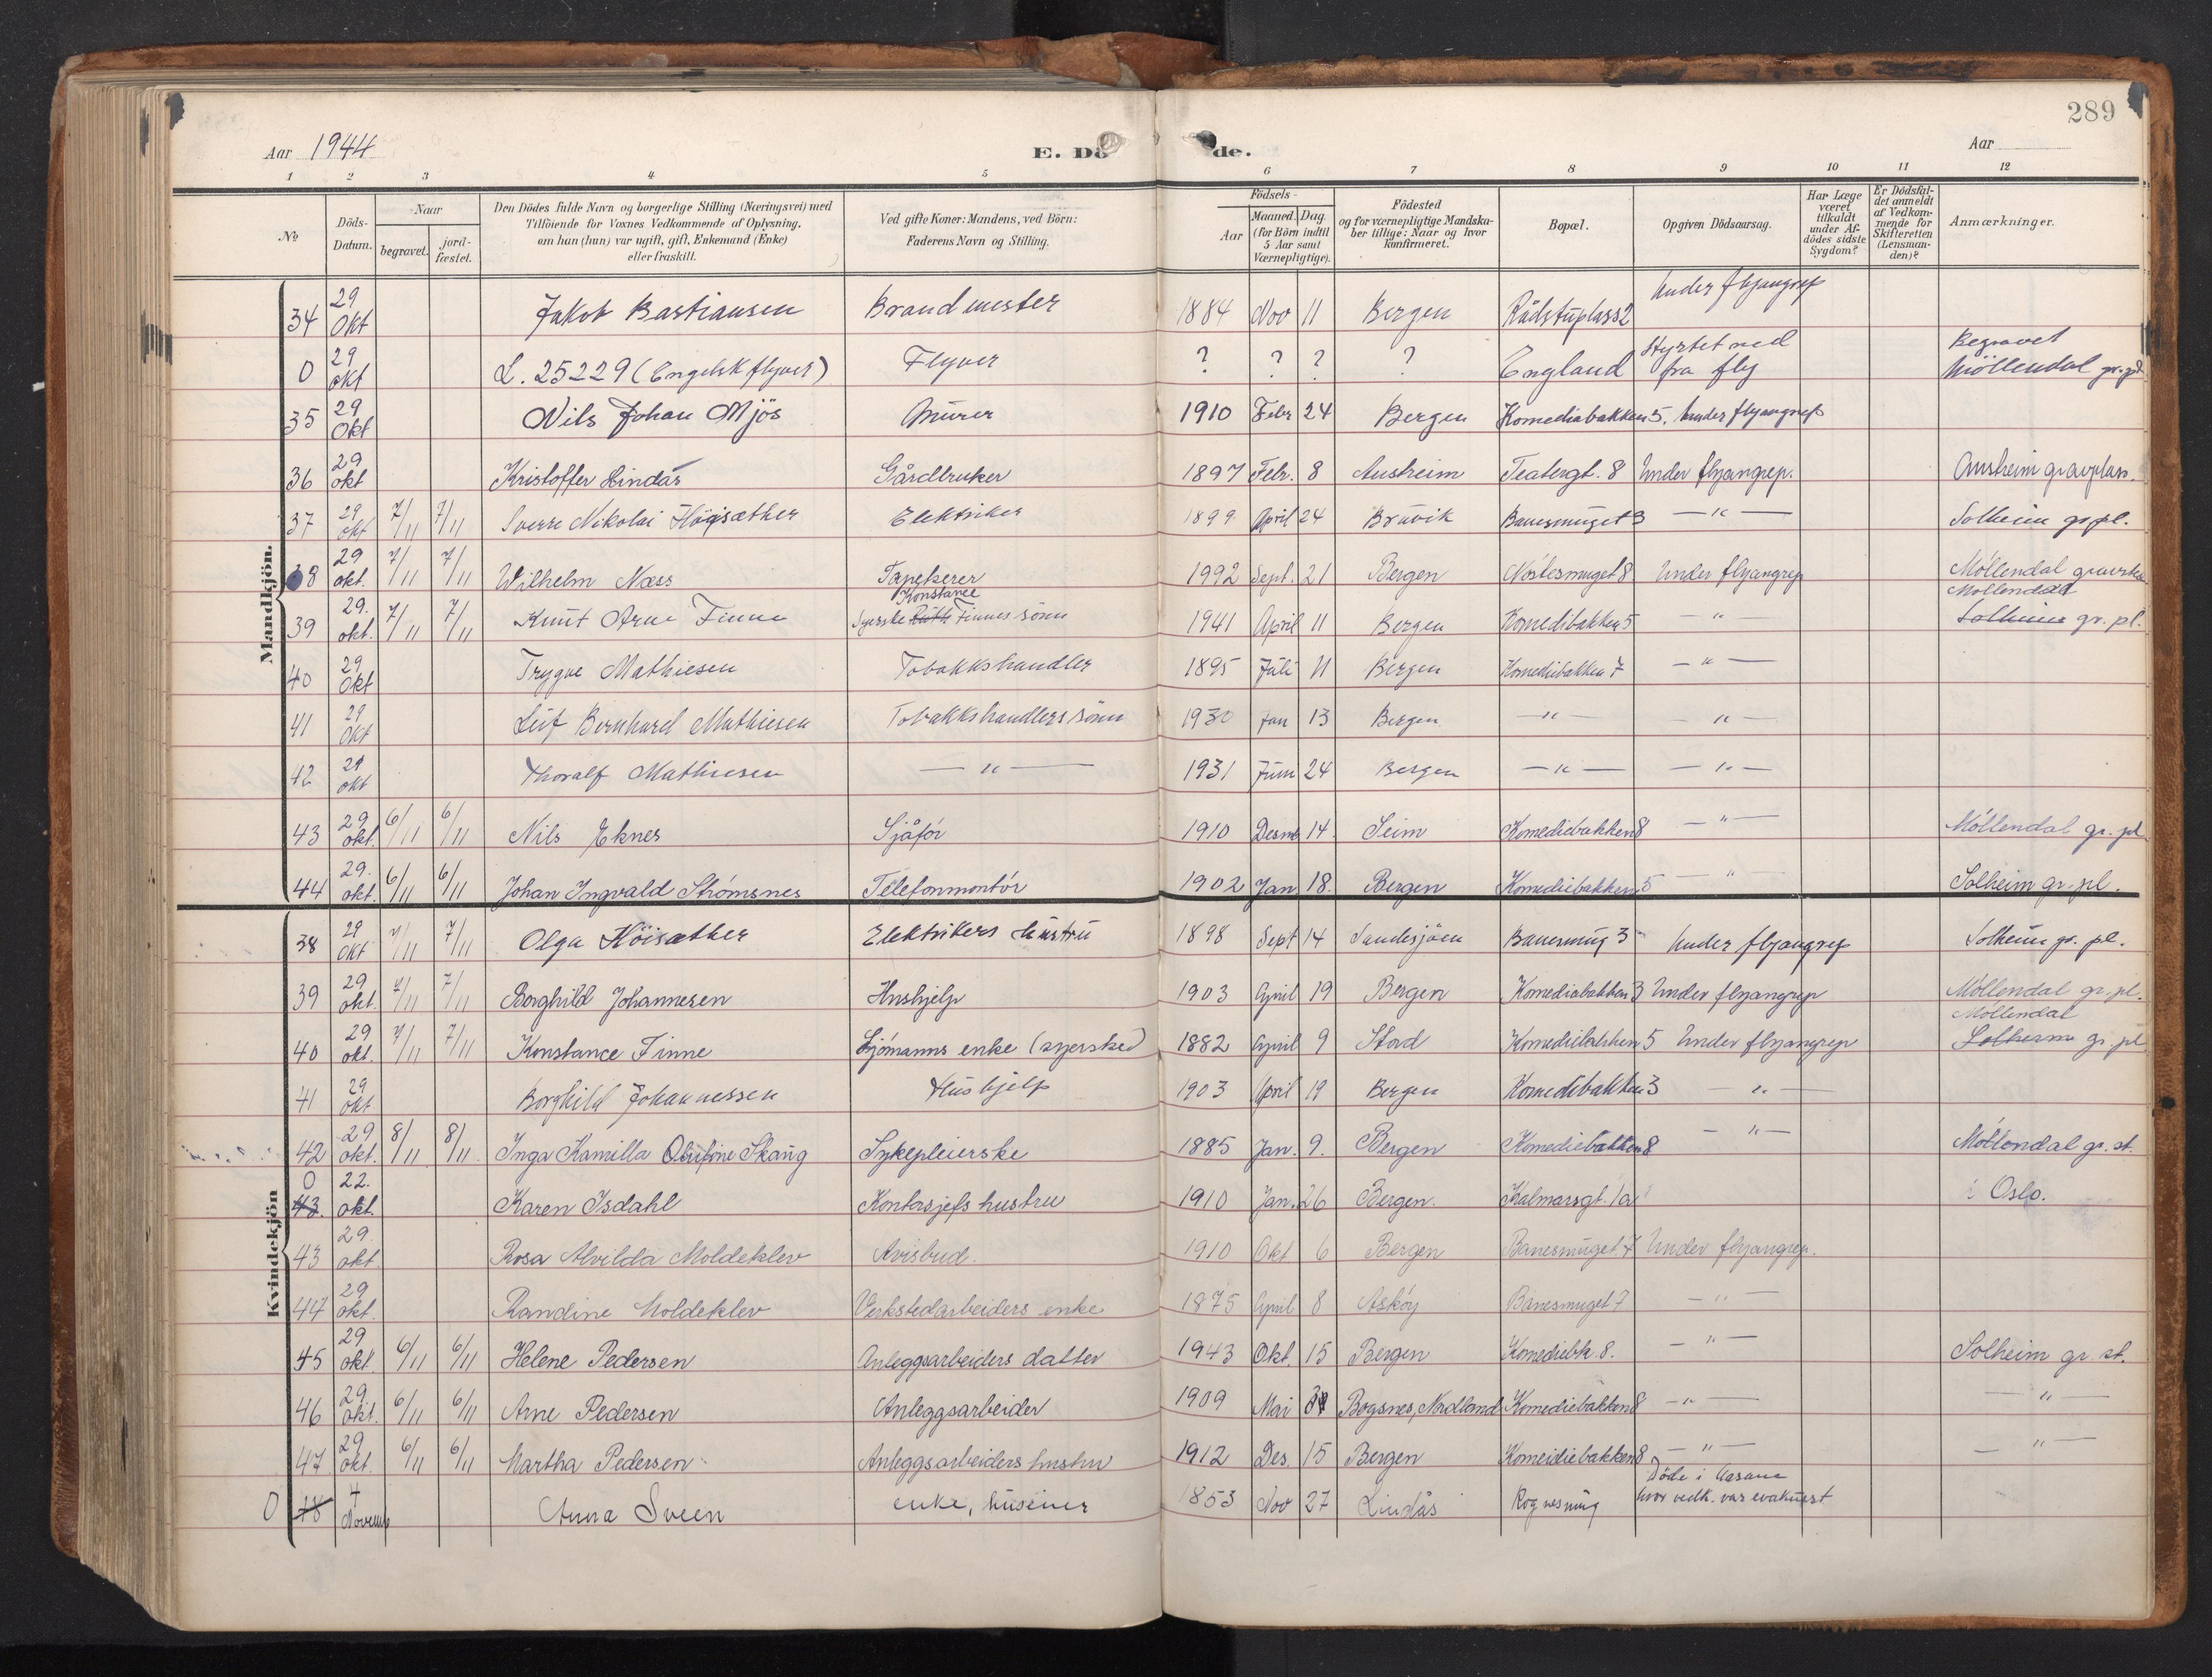 289
Aar 1944
E. Dö de.
Aar
1 2 3 4 5 6 7 8 9 10 11 12
№
Döds-Datum.
Naar
begravet.
jord-fæstet.
Den Dödes fulde Navn og borgerlige Stilling (Næringsvei) med
Tilföiende for Voxnes Vedkommende af Oplysning,
om han (hun) var ugift, gift, Enkemand (Enke)
eller fraskilt.
Ved gifte Koner: Mandens, ved Börn:
Faderens Navn og Stilling.
Födsels-
Aar
Maaned. Dag.
(for Börn indtil
5 Aar samt
Værnepligtige).
Födested
og for værnepligtige Mandska-
ber tillige: Naar og hvor
konfirmeret.
Bopæl.
Opgiven Dödsaarsag.
Har Læge
været
tilkaldt
under Af-
dödes sidste
Sygdom?
Er Dödsfal-
det anmeldt
af Vedkom-
mende for
Skifteretten
(Lensman-
den)?
Anmærkninger.
Mandkjön.
34 29 Okt Jakob Bastiansen Brandmester 1884 Nov 11 Bergen Rådstuplass 2 Under flyangrep
0 29 okt L. 25229 (Engelsk flyver) Flyver ? ? ? ? England Styrtet ned fra fly Begravet Möllendal gr.pl.
35 29 Okt Nils Johan Mjös Murer 1910 Febr 24 Bergen Komediebakken 5. Under flyangrep
36 29 okt Kristoffer Lindås Gårdbruker 1897 Febr. 8 Austreim Teatergt. 8 Under flyangrep. Austreim gravplass.
37 29 okt 7/11 7/11 Sverre Nikolai Högisæther Elektriker 1899 April 24 Bruvik Banesmuget 3 — " — Solheim gr.pl.
38 29 okt. 7/11 7/11 Wilhelm Næss Tapetserer 1992 Sept. 21 Bergen Nöstesmuget 8 Under flyangrep Möllendal
39 29. okt. 7/11 7/11 Knut Arne Finne Syerske Ruth Konstance Finnes sönn 1941 April 11 Bergen Komedibakken 5 — " — Möllendal Solheim gr.pl.
40 29 Okt Trygve Mathiesen Tobakkshandler 1895 Juli 11 Bergen Komediebakken 7 — " —
41 29 Okt Leif Bernhard Mathiesen Tobakkshandlers sönn 1930 Jan 13 Bergen — " — — " —
42 29 okt Thoralf Mathiesen — " — 1931 Juni 24 Bergen — " — — " —
43 29 okt. 6/11 6/11 Nils Eknes Sjåför 1910 Desmb 14. Seim Komediebakken 8 — " — Möllendal gr. pl
44 29. okt. 6/11 6/11 Johan Ingvald Strömsnes Telefonmontör 1902 Jan. 18. Bergen Komediebakken 5 — " — Solheim gr. pl.
Kvindekjön
38 29 okt 7/11 7/11 Olga Höisæther Elektrikers hustru 1898 Sept 14 Sandesjöen Banesmug 3 Under flyangrep Solheim gr. pl.
39 29 okt. 7/11 7/11 Borghild Johannesen Hushjelp 1903 April 19 Bergen Komediebakken 3 Under flyangrep Möllendal gr. pl.
40 29 okt. 7/11 7/11 Konstance Finne Sjömanns enke (syerske) 1882 April 9 Stord Komediebakken 5 Under flyangrep Möllendal Solheim gr. pl
41 29 okt Borghild Johannessen Hushjelp 1903 April 19 Bergen Komediebakken 3 — " —
42 29 okt. 8/11 8/11. Inga Kamilla Olufine Skaug Sykepleierske 1885 Jan. 9. Bergen Komediebakken 8 — " — Möllendal gr. st.
0 43. 22. okt. Karen Isdahl Kontorsjefs hustru 1910 Jan. 26 Bergen. Kalmarsgt. 1a i Oslo.
43 29. okt. Rosa Alvilda Moldeklev Avisbud. 1910 Okt 6 Bergen Banesmuget 7 Under flyangrep.
44 29 okt. Randine Moldeklev Verkstedarbeiders enke 1875 April 8 Asköy Banesmuget 7 — " —
45 29 okt. 6/11 6/11 Helene Pedersen Anleggsarbeiders datter 1943 Okt. 15 Bergen Komediebk. 8. — " — Solheim gr. st.
46 29. okt. 6/11 6/11 Arne Pedersen Anleggsarbeider 1909 Mai Bogsnes, Nordland Komediebakken 8 — " — — " —
47 29 okt. 6/11 6/11 Martha Pedersen Anleggsarbeiders hustru 1912 Des. 15 Bergen Komeidiebakken 8 — " — — " —
0 48 4 Novemb Anna Sveen enke, huseier 1853 Nov 27 Lindås Rognesmug Döde i Aasane hvor vedk. var evakuert